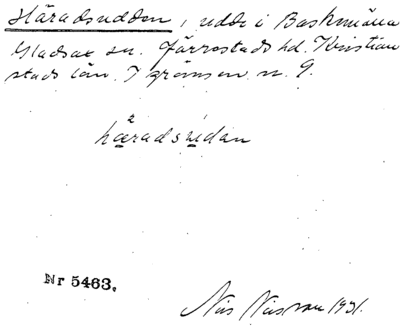 Häradsudden, udde i Baskmölla
Gladsax sn. Järrestads hd. Kristian
stads län. I gränsen n. 9.
hæradsudan
Nr 5463.
Nils 1931.